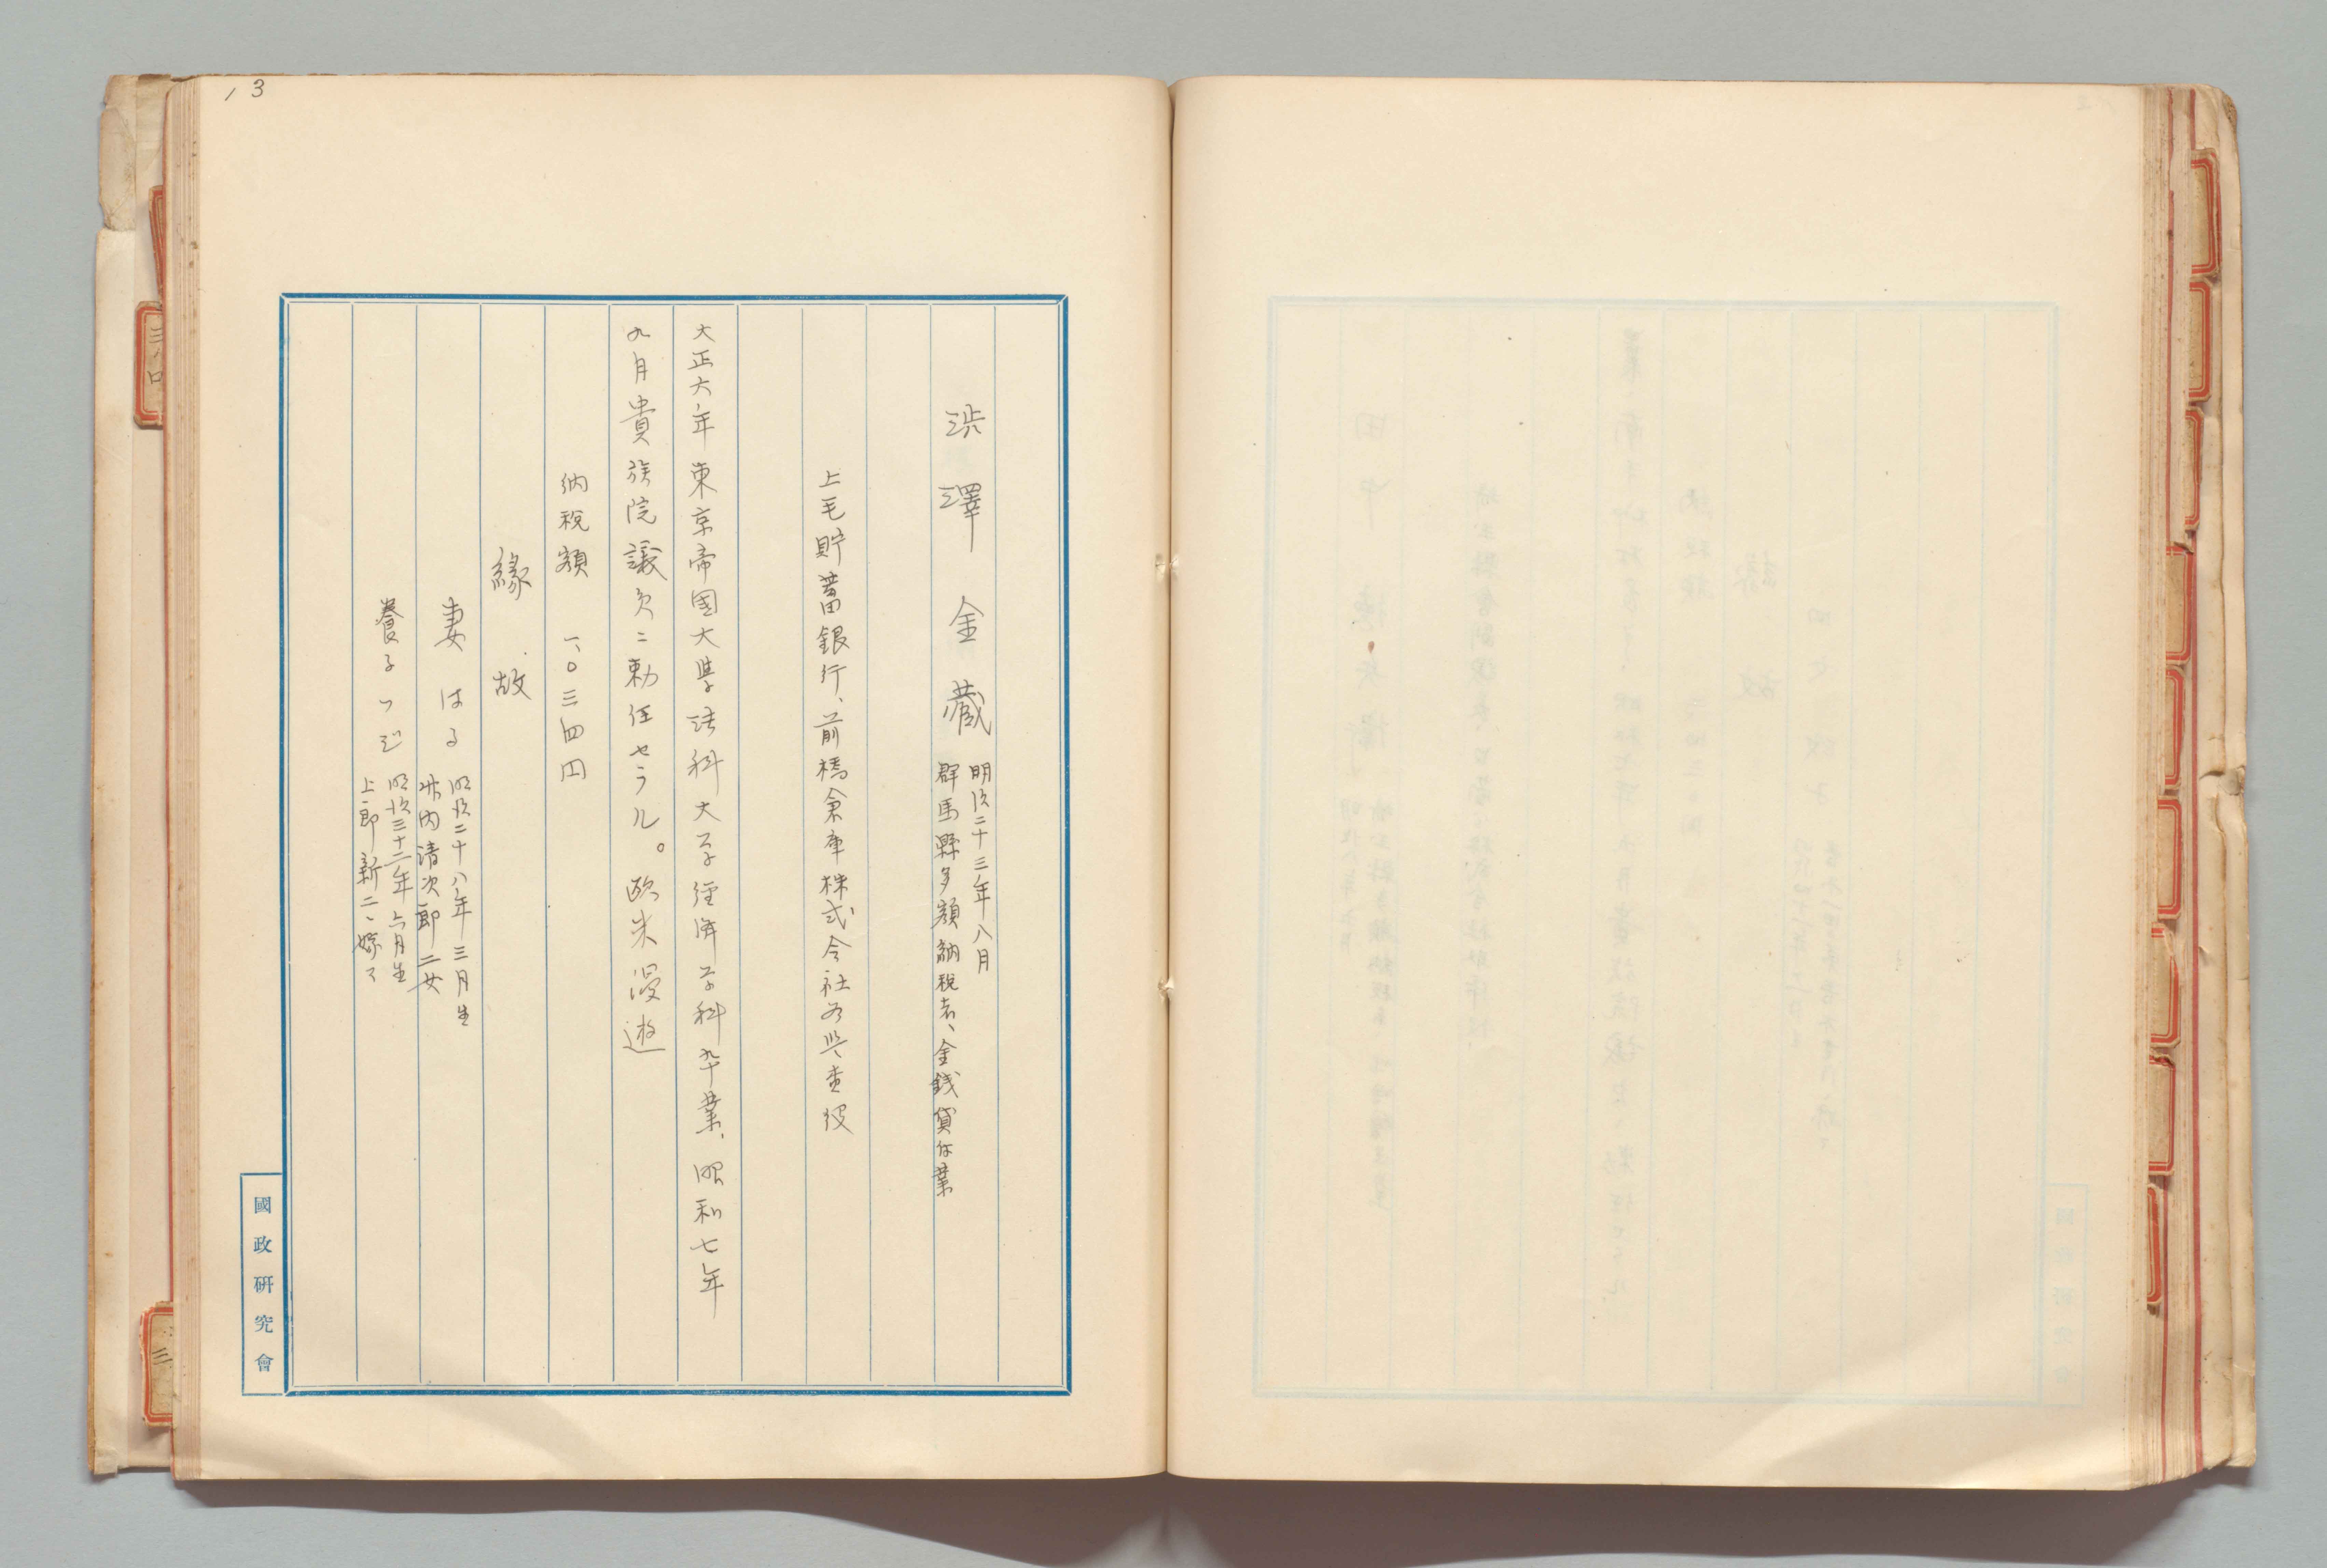 13
渋澤金藏
明治二十三年八月
群馬縣多額納税者、金銭貸付業
上毛貯蓄銀行、前橋倉庫株式会社各監査役
大正六年東京帝国大学法科大学経済学科卒業、昭和七年
九月貴族院議員ニ勅任セラル。欧米漫遊
納税額 一、〇三四円
縁故
妻 はる
明治二十八年三月生
内清次郎二女
養子
明治三十二年六月生
上郎新二ニ嫁ス
國政研究會